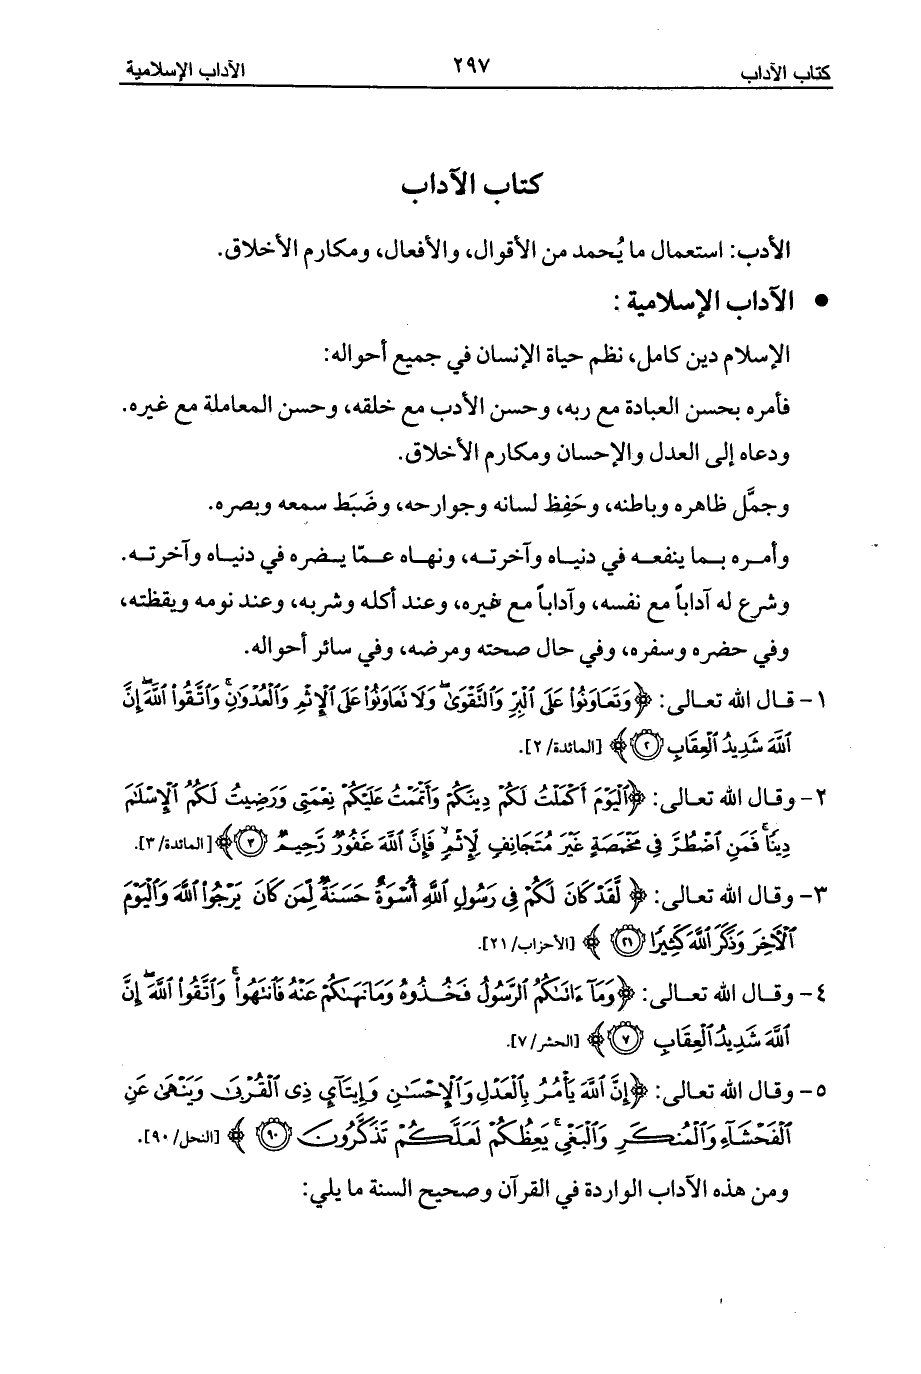 كتاب الآداب
٢٩٧
الآداب الإسلامية
كتاب الآداب
الأدب: استعمال ما يُحمد من الأقوال، والأفعال، ومكارم الأخلاق.
• الآداب الإسلامية :
الإسلام دين كامل، نظم حياة الإنسان في جميع أحواله:
فأمره بحسن العبادة مع ربه، وحسن الأدب مع خلقه، وحسن المعاملة مع غيره.
ودعاه إلى العدل والإحسان ومكارم الأخلاق.
وجمَّل ظاهره وباطنه، وحَفِظ لسانه وجوارحه، وضَبَط سمعه وبصره.
وأمره بما ينفعه في دنياه وآخرته، ونهاه عمّا يضره في دنياه وآخرته.
وشرع له آداباً مع نفسه، وآداباً مع غيره، وعند أكله وشربه، وعند نومه ويقظته،
وفي حضره وسفره، وفي حال صحته ومرضه، وفي سائر أحواله.
١- قال الله تعالى: ﴿وَتَعَاوَنُوا۟ عَلَى ٱلْبِرِّ وَٱلتَّقْوَىٰ ۖ وَلَا نَعَاوَنُوا۟ عَلَى ٱلْإِثْمِ وَٱلْعُدْوَٰنِ ۚ وَٱتَّقُوا۟ ٱللَّهَ ۖ إِنَّ
ٱللَّهَ شَدِيدُ ٱلْعِقَابِ ٢﴾ [المائدة/ ٢].
٢- وقال الله تعالى: ﴿ٱلْيَوْمَ أَكْمَلْتُ لَكُمْ دِينَكُمْ وَأَتْمَمْتُ عَلَيْكُمْ نِعْمَتِى وَرَضِيتُ لَكُمُ ٱلْإِسْلَٰمَ
دِينًا ۚ فَمَنِ ٱضْطُرَّ فِى مَخْمَصَةٍ غَيْرَ مُتَجَانِفٍ لِّإِثْمٍ ۙ فَإِنَّ ٱللَّهَ غَفُورٌ رَّحِيمٌ ٣﴾ [المائدة/ ٣].
٣- وقال الله تعالى: ﴿لَّقَدْ كَانَ لَكُمْ فِى رَسُولِ ٱللَّهِ أُسْوَةٌ حَسَنَةٌ لِّمَن كَانَ يَرْجُوا۟ ٱللَّهَ وَٱلْيَوْمَ
ٱلْءَاخِرَ وَذَكَرَ ٱللَّهَ كَثِيرًا ٢١﴾ [الأحزاب/ ٢١].
٤- وقال الله تعالى: ﴿وَمَآ ءَاتَىٰكُمُ ٱلرَّسُولُ فَخُذُوهُ وَمَا نَهَىٰكُمْ عَنْهُ فَٱنتَهُوا۟ ۚ وَٱتَّقُوا۟ ٱللَّهَ ۖ إِنَّ
ٱللَّهَ شَدِيدُ ٱلْعِقَابِ ٧﴾ [الحشر/ ٧].
٥- وقال الله تعالى: ﴿إِنَّ ٱللَّهَ يَأْمُرُ بِٱلْعَدْلِ وَٱلْإِحْسَٰنِ وَإِيتَآىِٕ ذِى ٱلْقُرْبَىٰ وَيَنْهَىٰ عَنِ
ٱلْفَحْشَآءِ وَٱلْمُنكَرِ وَٱلْبَغْىِ ۚ يَعِظُكُمْ لَعَلَّكُمْ تَذَكَّرُونَ ٩٠﴾ [النحل/ ٩٠].
ومن هذه الآداب الواردة في القرآن وصحيح السنة ما يلي: